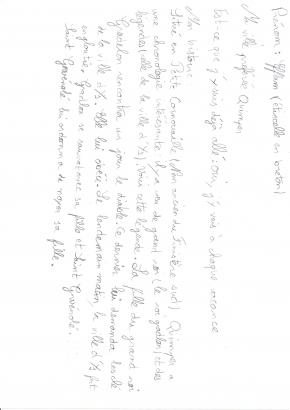 Prénom : Yffam (étincelle en breton)
Ma ville préférée Quimper
Est-ce que j'y suis déjà allé : oui, j'y vais à chaque vacance
Mon histoire :
Situé en Petite Cornouaille (Nom ancien du Finistère sud) Quimper a
une chronologie intéressante il y a eu de grand roi (le roi gradlon) et des
légendes (celle de la ville d'Ys). Voici cette légende. La fille du grand roi
Gradlon rencontra un jour le diable. Ce dernier lui demanda les clé
de la ville d'Ys. Elle lui obéit. Le lendemain matin la ville d'Ys fut
engloutie. Gradlon se sauva avec sa fille et Saint Gwénolé.
Saint Gwénolé lui ordonna de noyer sa fille.